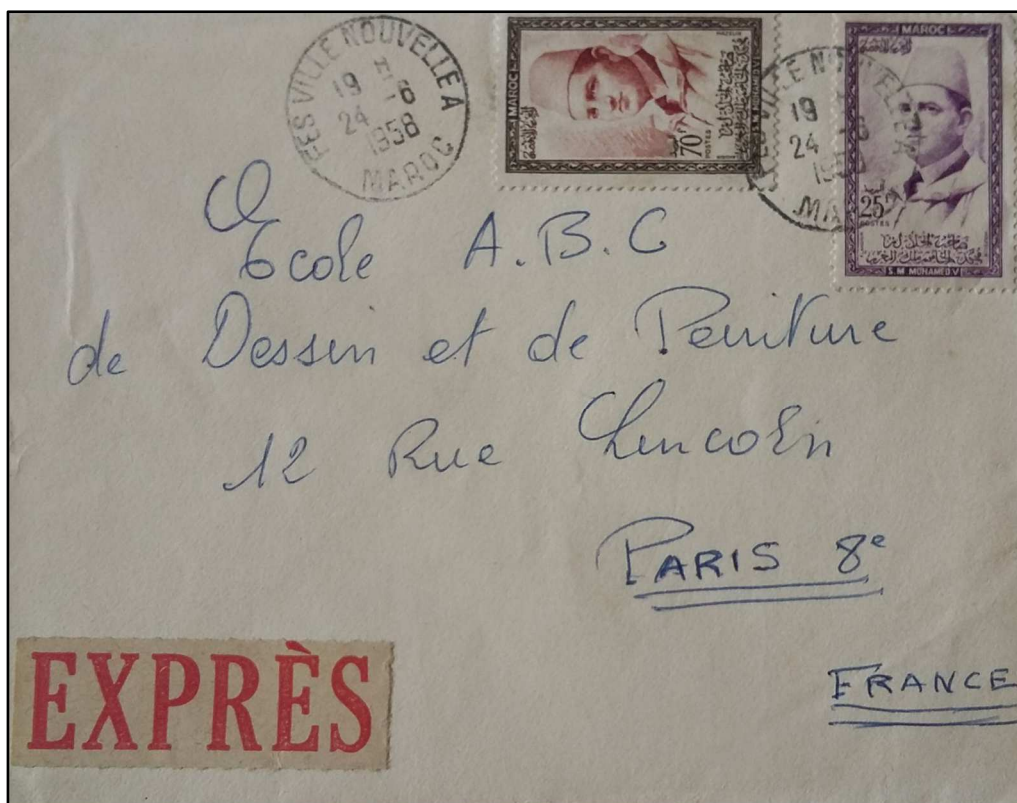 FES VILLE NOUVELLE A
19
24 -6
1958
MAROC
MAROC
70F
POSTES
S.M. MOHAMED V
19
24
MAROC
25F
POSTES
S.M. MOHAMED V
Ecole A.B.C
de Dessin et de Peinture
12 Rue Lincoln
PARIS 8e
FRANCE
EXPRÈS